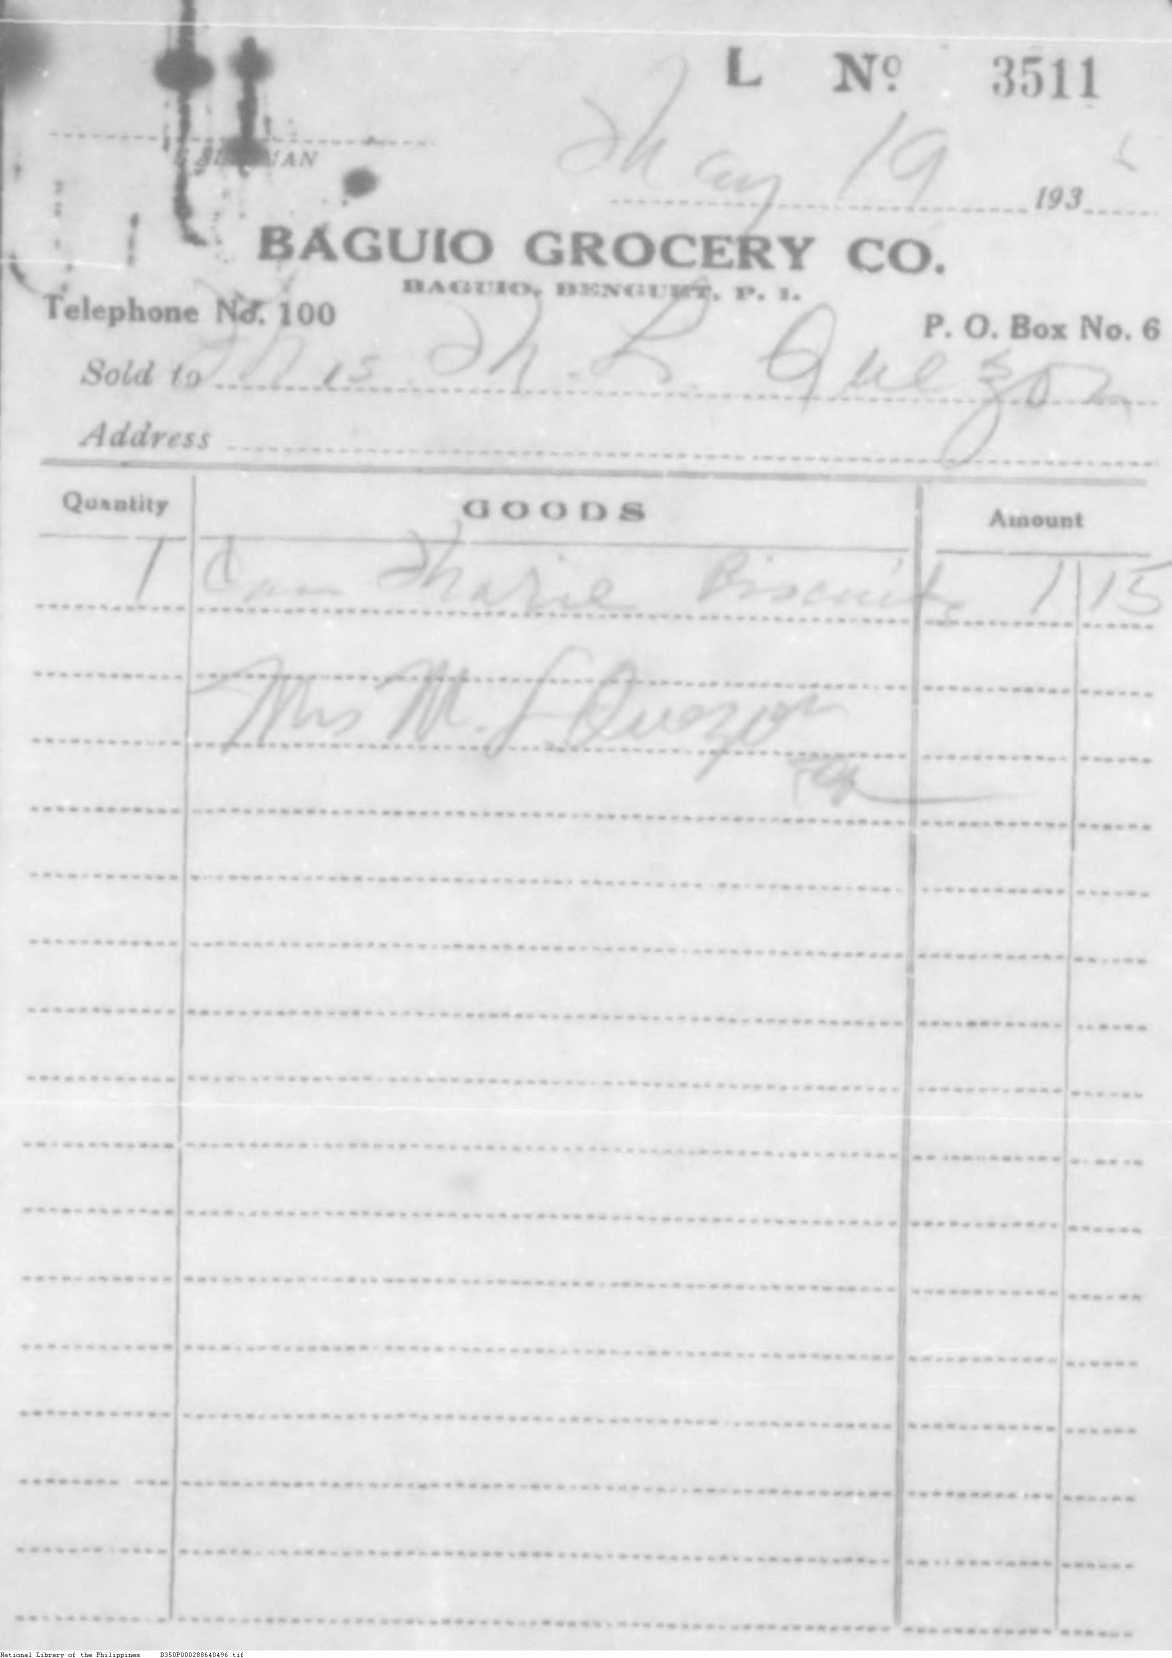 L No. 3511
SALESMAN
May 19 193
BAGUIO GROCERY CO.
BAGUIO, BENGUET, P. I.
Telephone No. 100
P. O. Box No. 6
Sold to Mrs. M. L. Quezon
Address
Quantity GOODS Amount
1 Can Marie Biscuits 1 15
Mrs M. L. Quezon
National Library of the Philippines